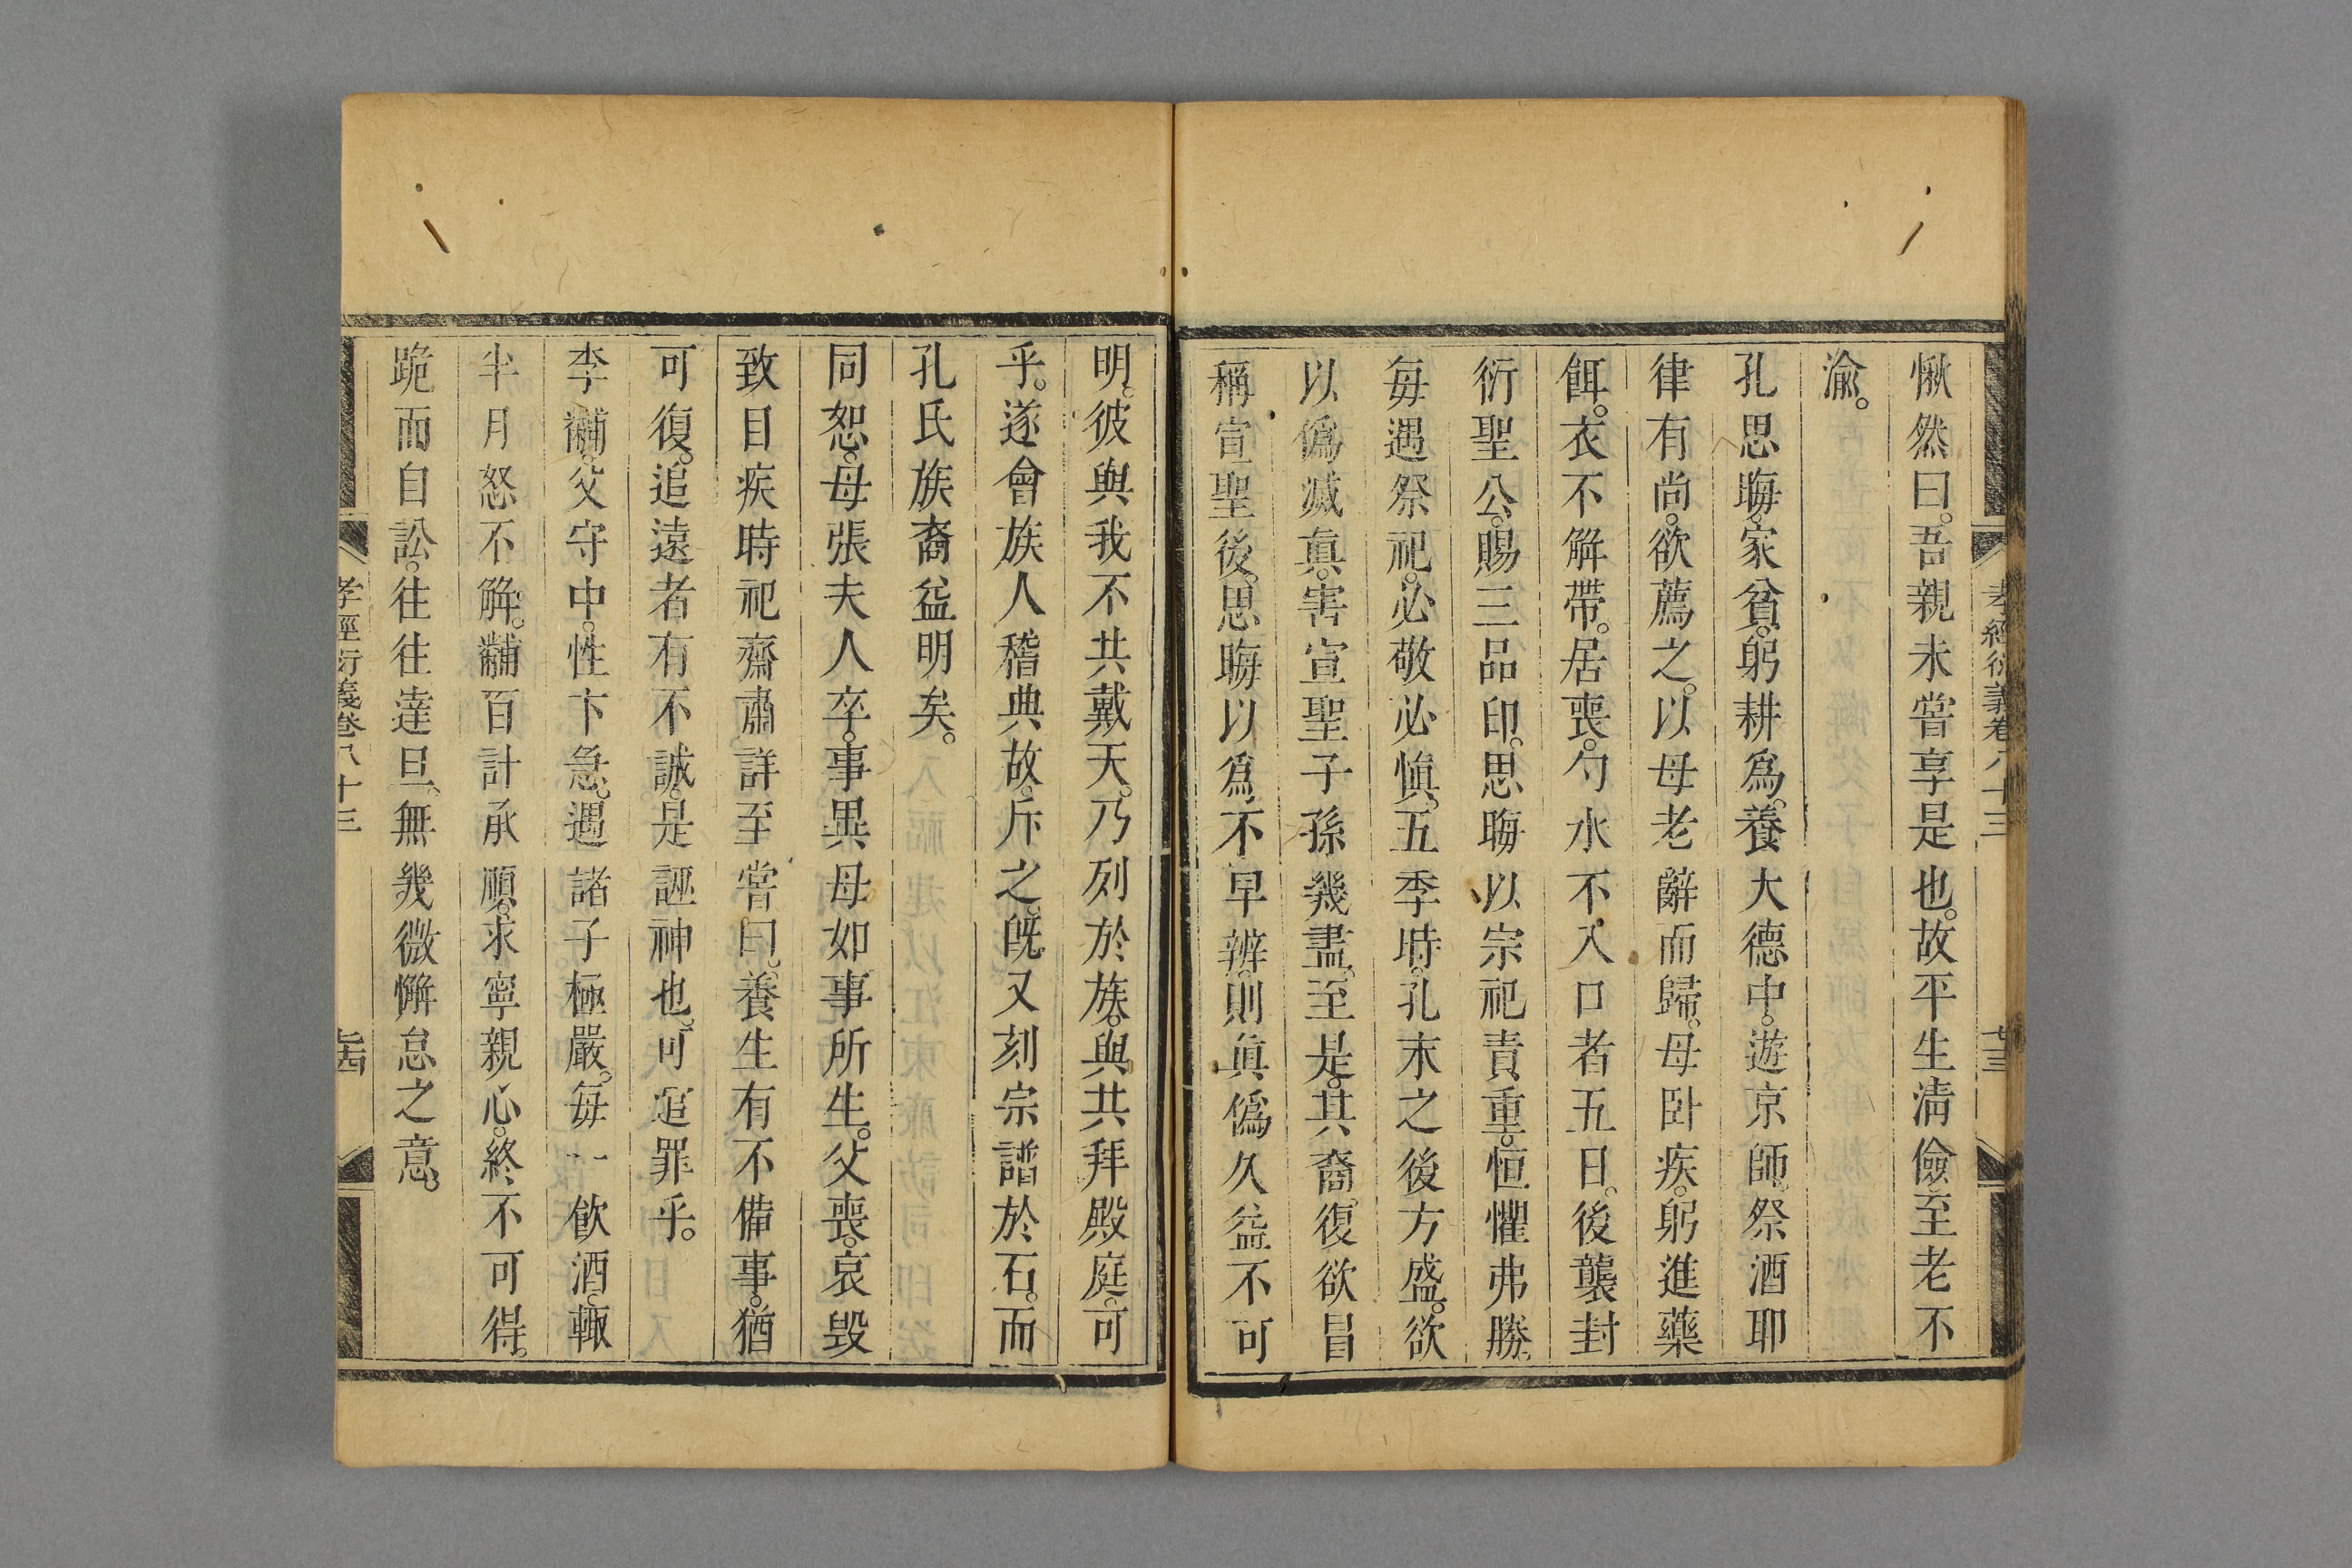 孝經衍義卷八十三
七三
愀然曰。吾親未嘗享是也。故平生清儉。至老不
渝。
孔思晦。家貧。躬耕爲養。大德中。遊京師。祭酒耶
律有尚。欲薦之。以母老辭而歸。母卧疾。躬進藥
餌。衣不解帶。居喪。勺水不入口者五日。後襲封
衍聖公。賜三品印。思晦以宗祀責重。恒懼弗勝。
每遇祭祀。必敬必愼。五季時。孔末之後方盛。欲
以僞滅眞。害宣聖子孫幾盡。至是。其裔。復欲冒
稱宣聖後。思晦以爲不早辨。則眞僞久益不可
明。彼與我不共戴天。乃列於族。與共拜殿庭。可
乎。遂會族人稽典故。斥之。旣又刻宗譜於石。而
孔氏族裔益明矣。
同恕。母張夫人卒。事異母如事所生。父喪。哀毁
致目疾時祀齋肅詳至嘗曰。養生有不備。事。猶
可復。追遠者有不誠。是誣神也。可逭罪乎。
李黼。父守中。性卞急。遇諸子極嚴。每一飮酒。輒
半月怒不解。黼百計承順。求寧親心。終不可得。
跪而自訟。往往達旦。無幾微懈怠之意。
孝經衍義卷八十三
七四